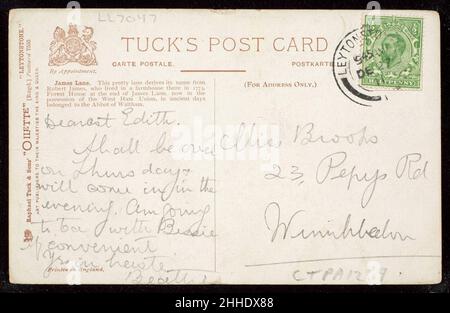 LL7047
TUCK'S POST CARD
By Appointment.
CARTE POSTALE.
POSTKARTE
(FOR ADDRESS ONLY.)
James Lane. This pretty lane derives its name from
Robert James, who lived in a farmhouse there in 1774.
Forest House at the end of James Lane, now in the
possession of the West Ham Union, in ancient days
belonged to the Abbot of Waltham.
Raphael Tuck & Sons' "OILETTE" [Regd.] Postcard 7585 "LEYTONSTONE."
ART PUBLISHERS TO THEIR MAJESTIES THE KING & QUEEN.
LEYTONSTONE
DE
Dearest Edith.
Shall be over
on Thursday
will come in in the
evening. Am going
to be with Bessie
if convenient
Yrs in haste
Printed in England.
Miss Brooks
23, Pepys Rd
Wimbledon
CTPA1229
alamy
Image ID: 2HHDX88
www.alamy.com